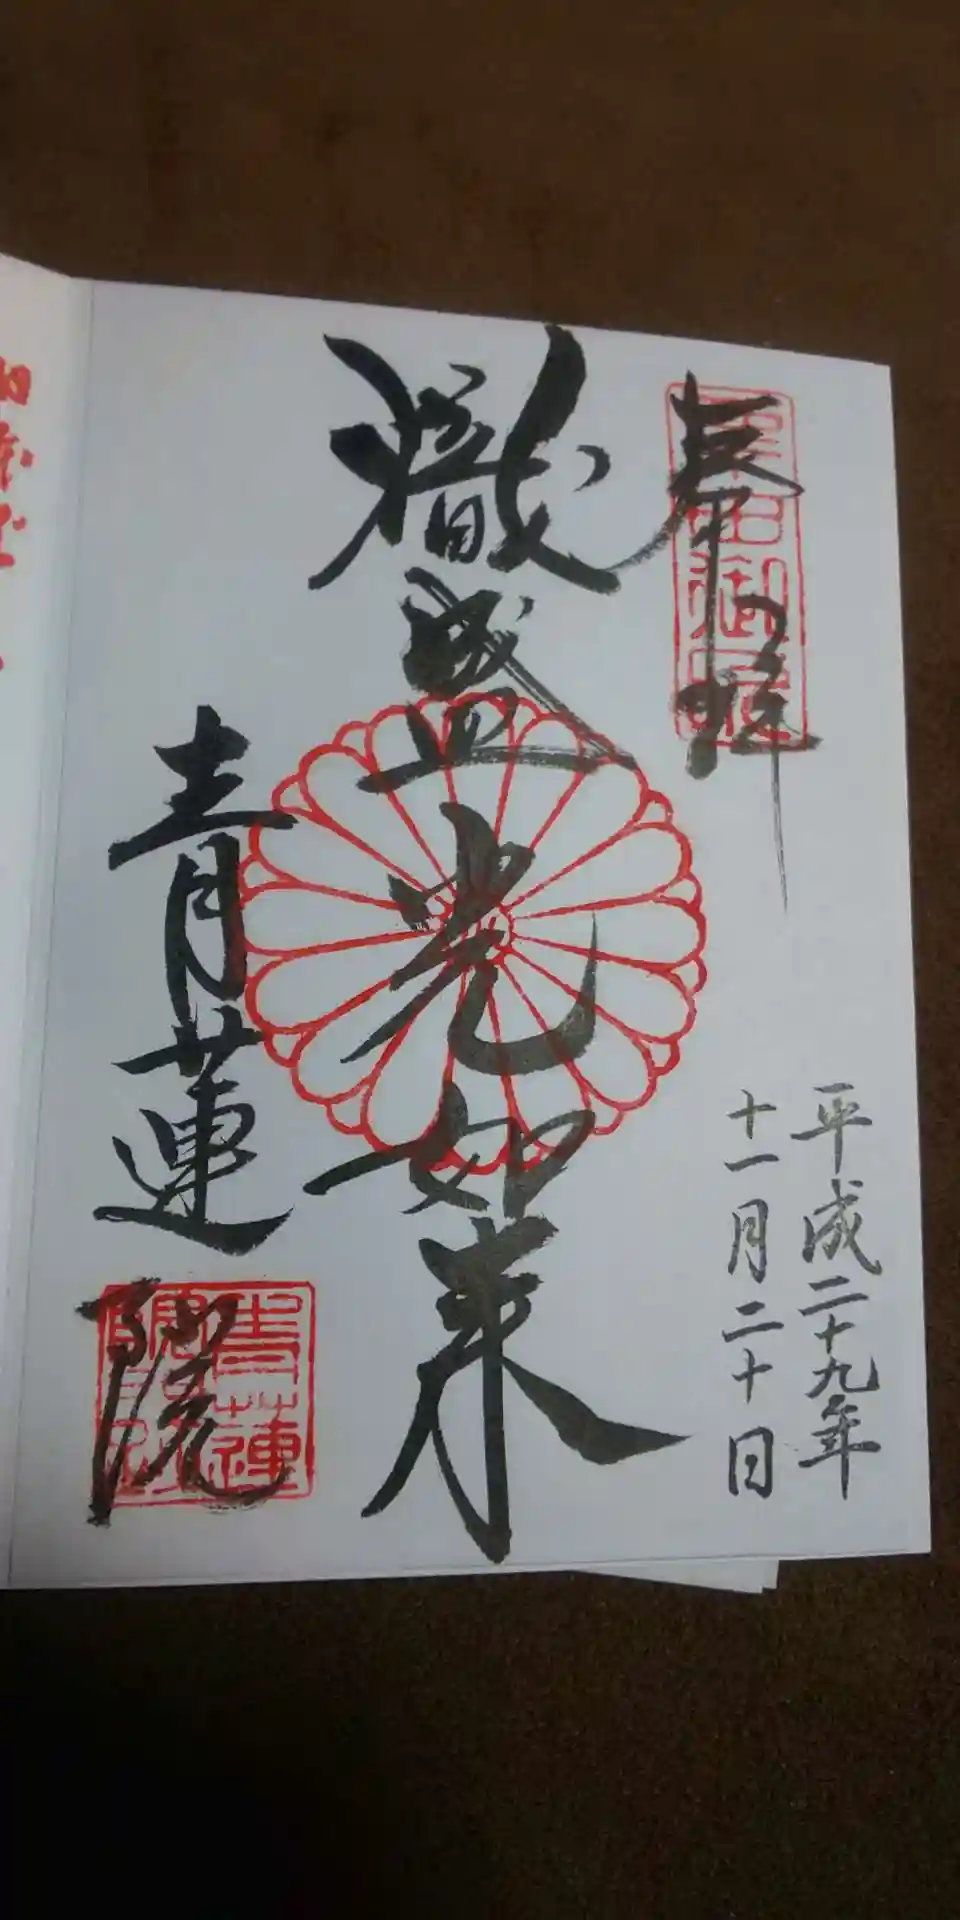 奉拝
粟田御所
平成二十九年
十一月二十日
熾盛光如来
青蓮院
青蓮院印